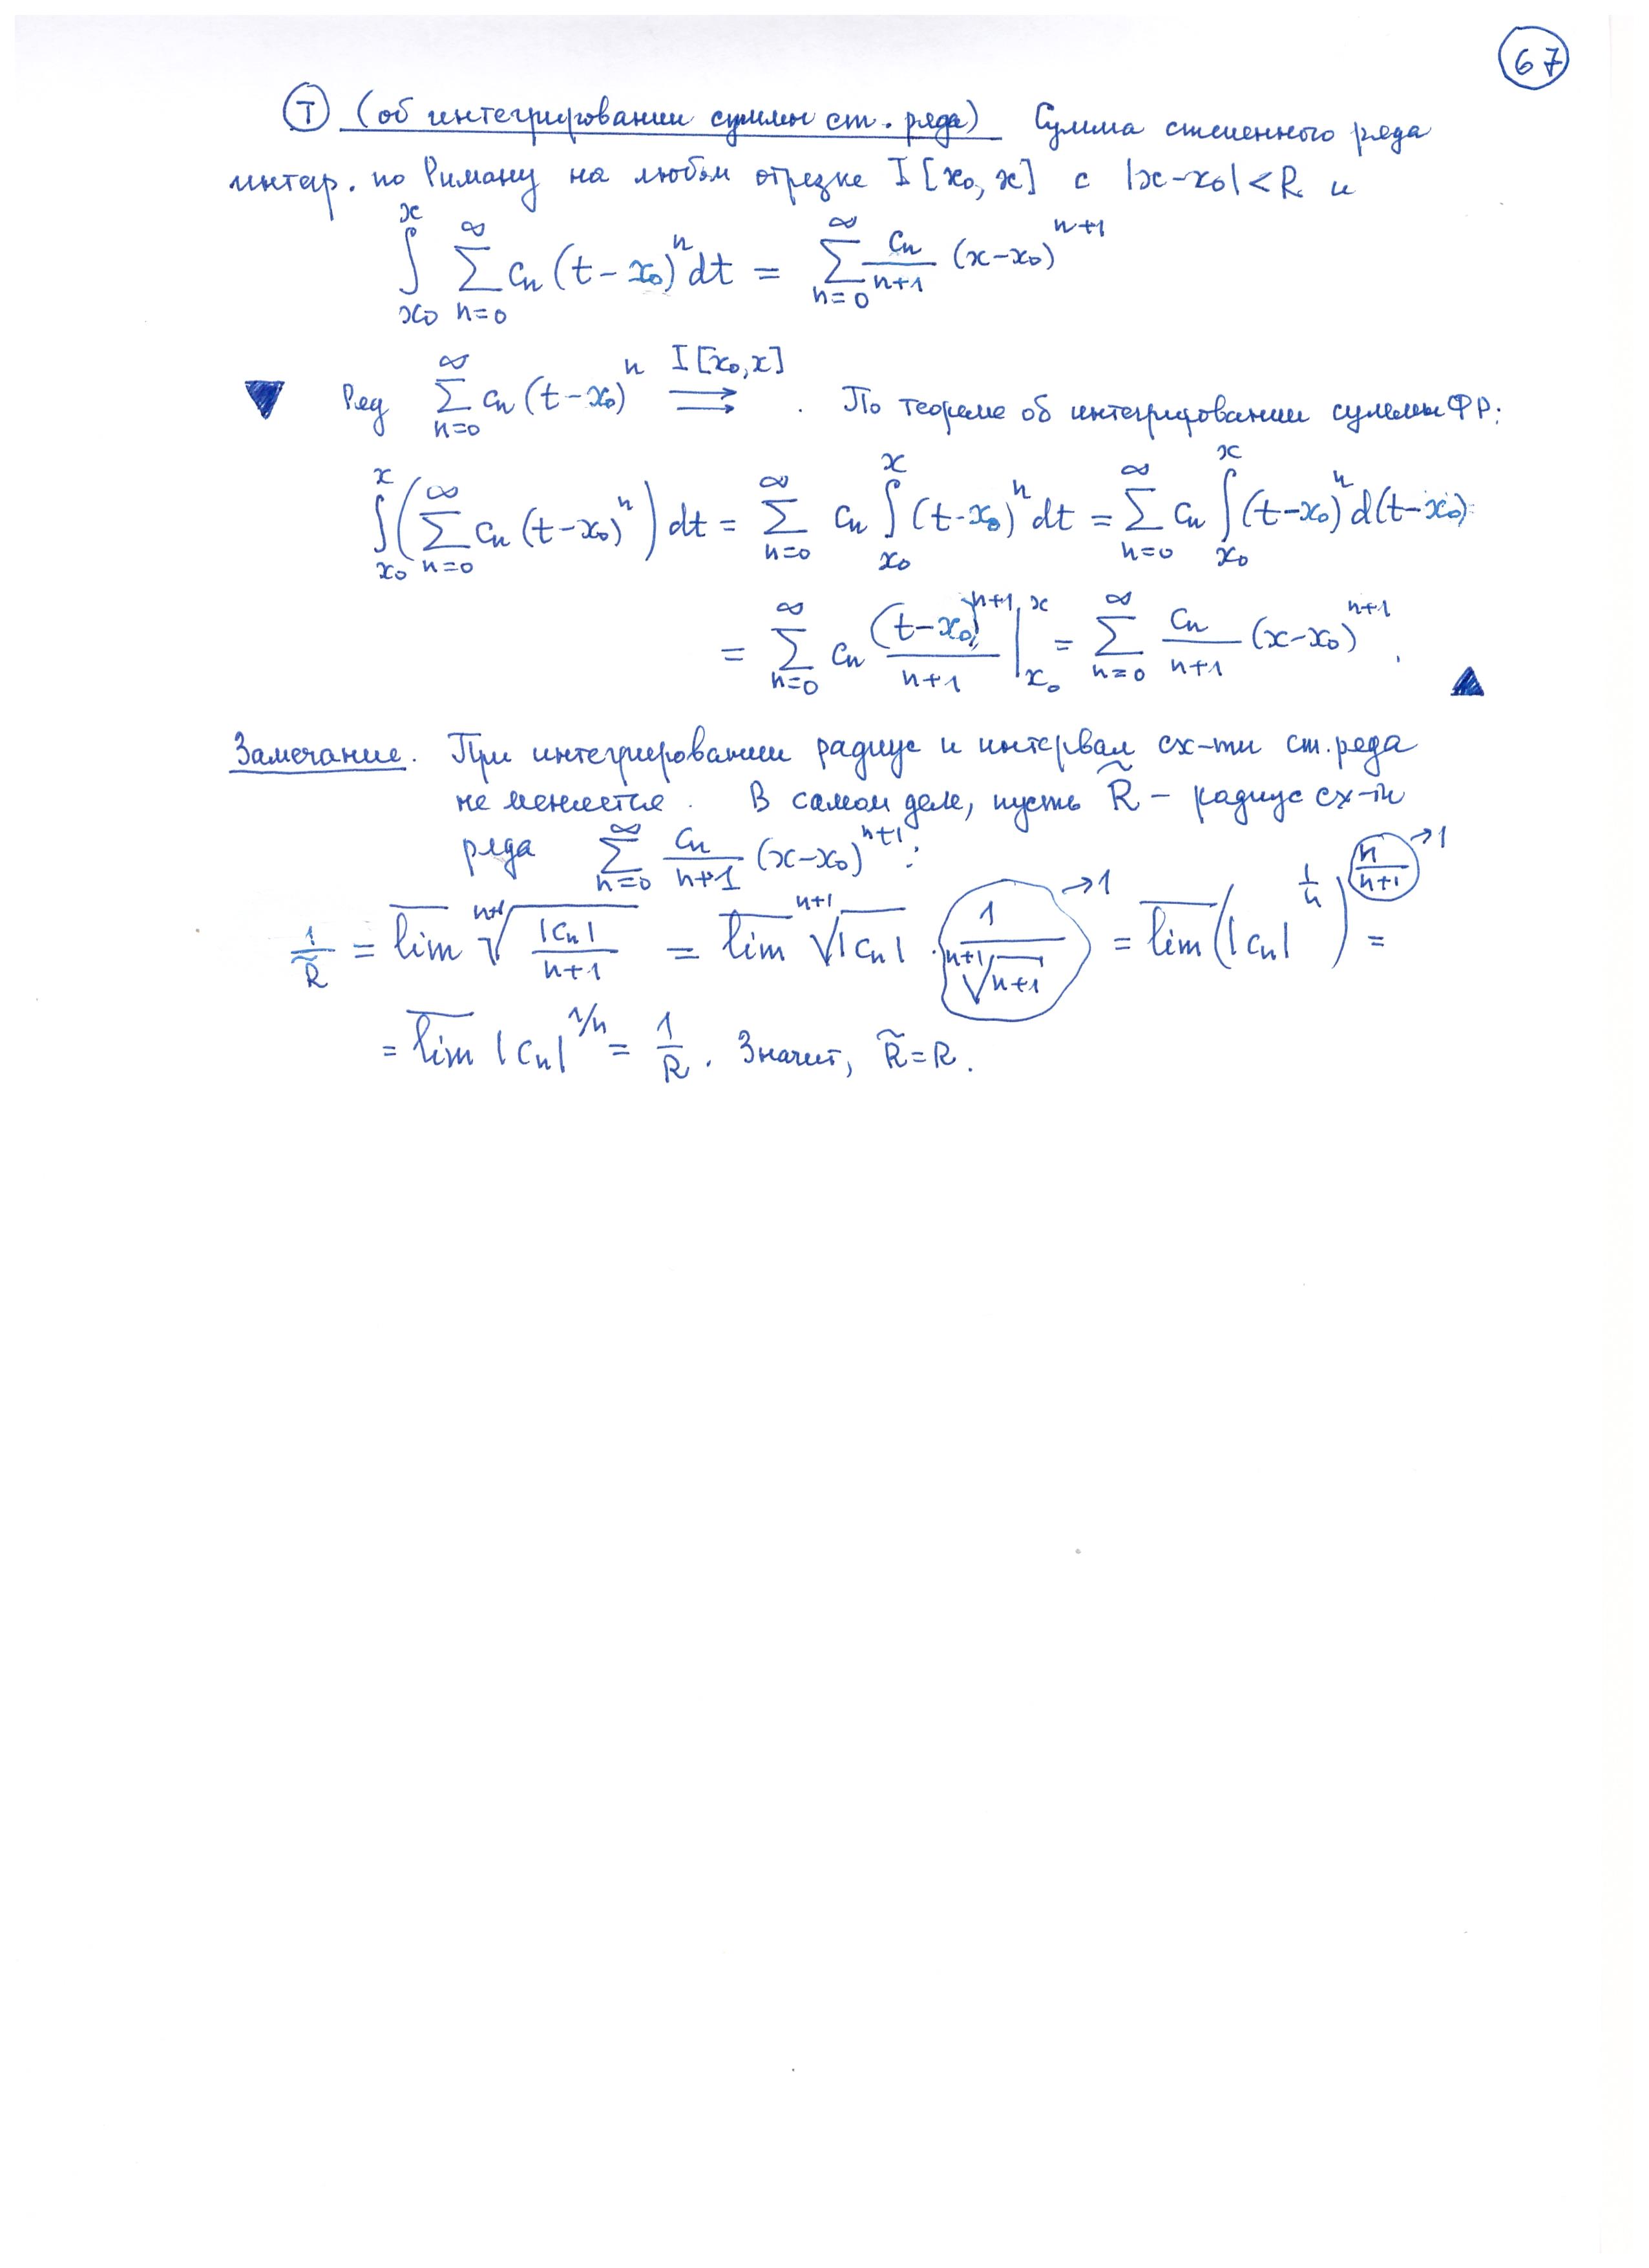 67
Ⓣ (об интегрировании суммы ст. ряда) Сумма степенного ряда
интегр. по Риману на любом отрезке I[x₀, x] с |x-x₀| < R и
∫_{x₀}^{x} ∑_{n=0}^{∞} cₙ (t-x₀)ⁿ dt = ∑_{n=0}^{∞} cₙ/(n+1) (x-x₀)^{n+1}
▼ Ряд ∑_{n=0}^{∞} cₙ (t-x₀)ⁿ ⇉^{I[x₀,x]} . По теореме об интегрировании суммы ФР:
∫_{x₀}^{x} (∑_{n=0}^{∞} cₙ (t-x₀)ⁿ) dt = ∑_{n=0}^{∞} cₙ ∫_{x₀}^{x} (t-x₀)ⁿ dt = ∑_{n=0}^{∞} cₙ ∫_{x₀}^{x} (t-x₀)ⁿ d(t-x₀)
= ∑_{n=0}^{∞} cₙ (t-x₀)^{n+1}/(n+1) |_{x₀}^{x} = ∑_{n=0}^{∞} cₙ/(n+1) (x-x₀)^{n+1} . ▲
Замечание. При интегрировании радиус и интервал сх-ти ст. ряда
не меняется. В самом деле, пусть R̃ – радиус сх-ти
ряда ∑_{n=0}^{∞} cₙ/(n+1) (x-x₀)^{n+1} :
1/R̃ = l̅i̅m̅ ^{n+1}√(|cₙ|/(n+1)) = l̅i̅m̅ ^{n+1}√|cₙ| · 1/^{n+1}√(n+1) →1 = l̅i̅m̅ (|cₙ|^{1/n})^{n/(n+1) →1} =
= l̅i̅m̅ |cₙ|^{1/n} = 1/R . Значит, R̃ = R .